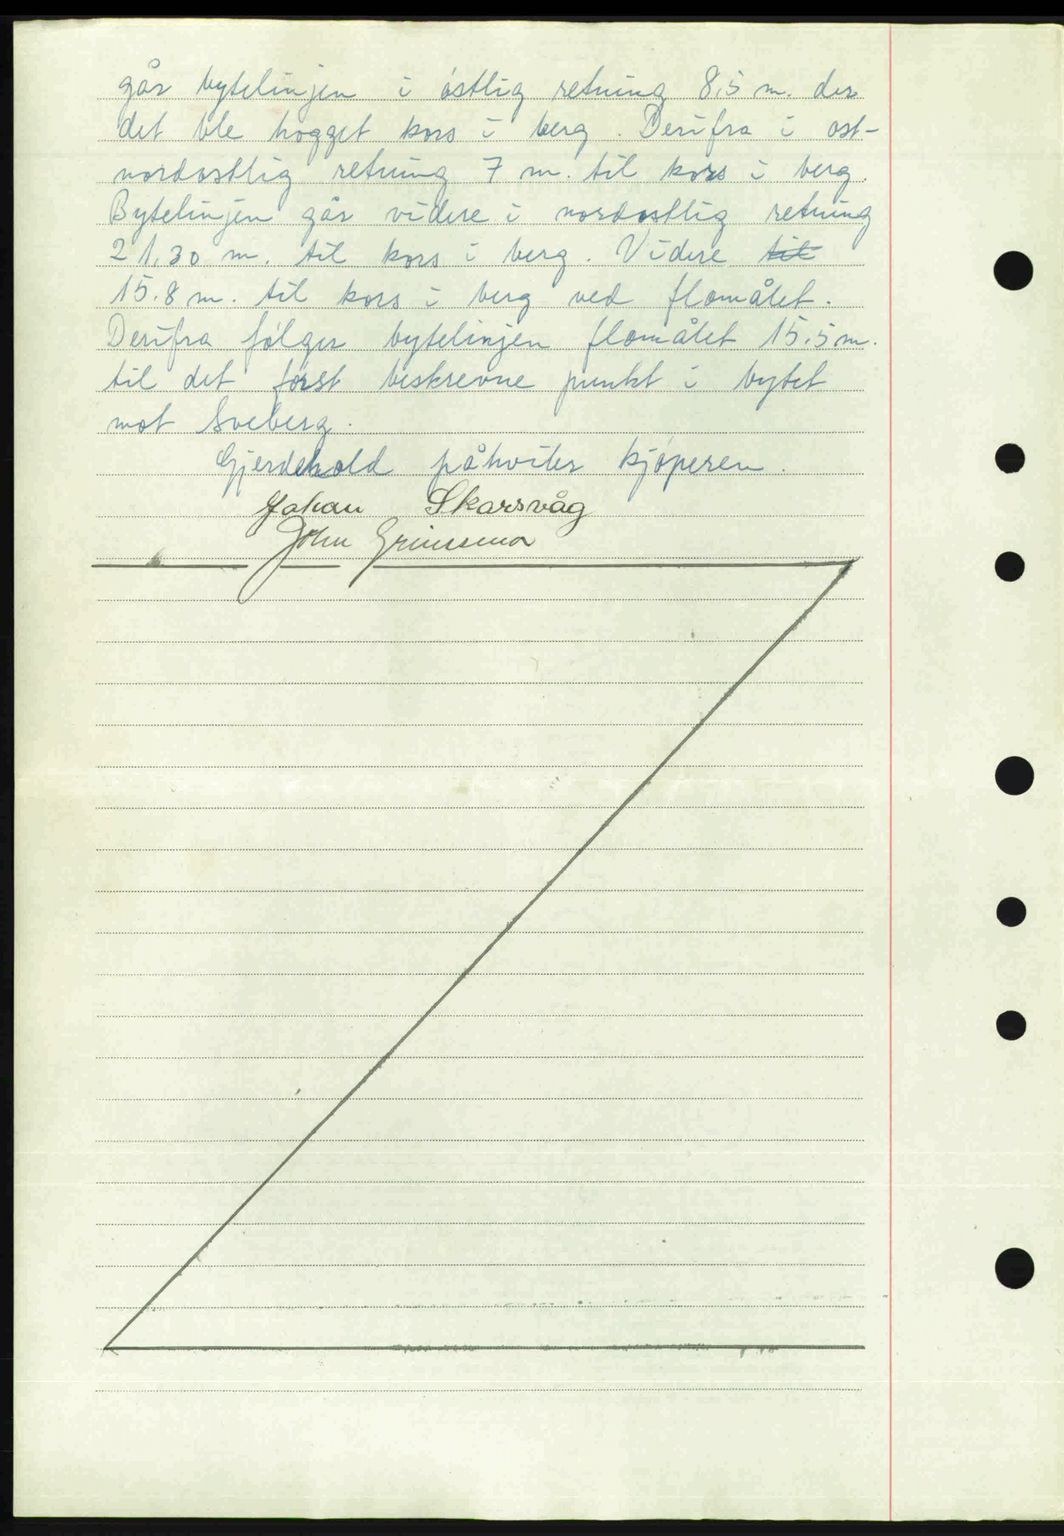 går bytelinjen i østlig retning 8,5 m. der
det ble hogget kors i berg. Derifra i ost-
nordostlig retning 7 m. til kors i berg.
Bytelinjen går videre i nordostlig retning
21,30 m. til kors i berg. Videre til
15.8 m. til kors i berg ved flomålet.
Derifra følger bytelinjen flomålet 15,5 m.
til det først beskrevne punkt i bytet
mot Sveberg.
Gjerdehold påhviler kjøperen.
Johan Skarsvåg
John